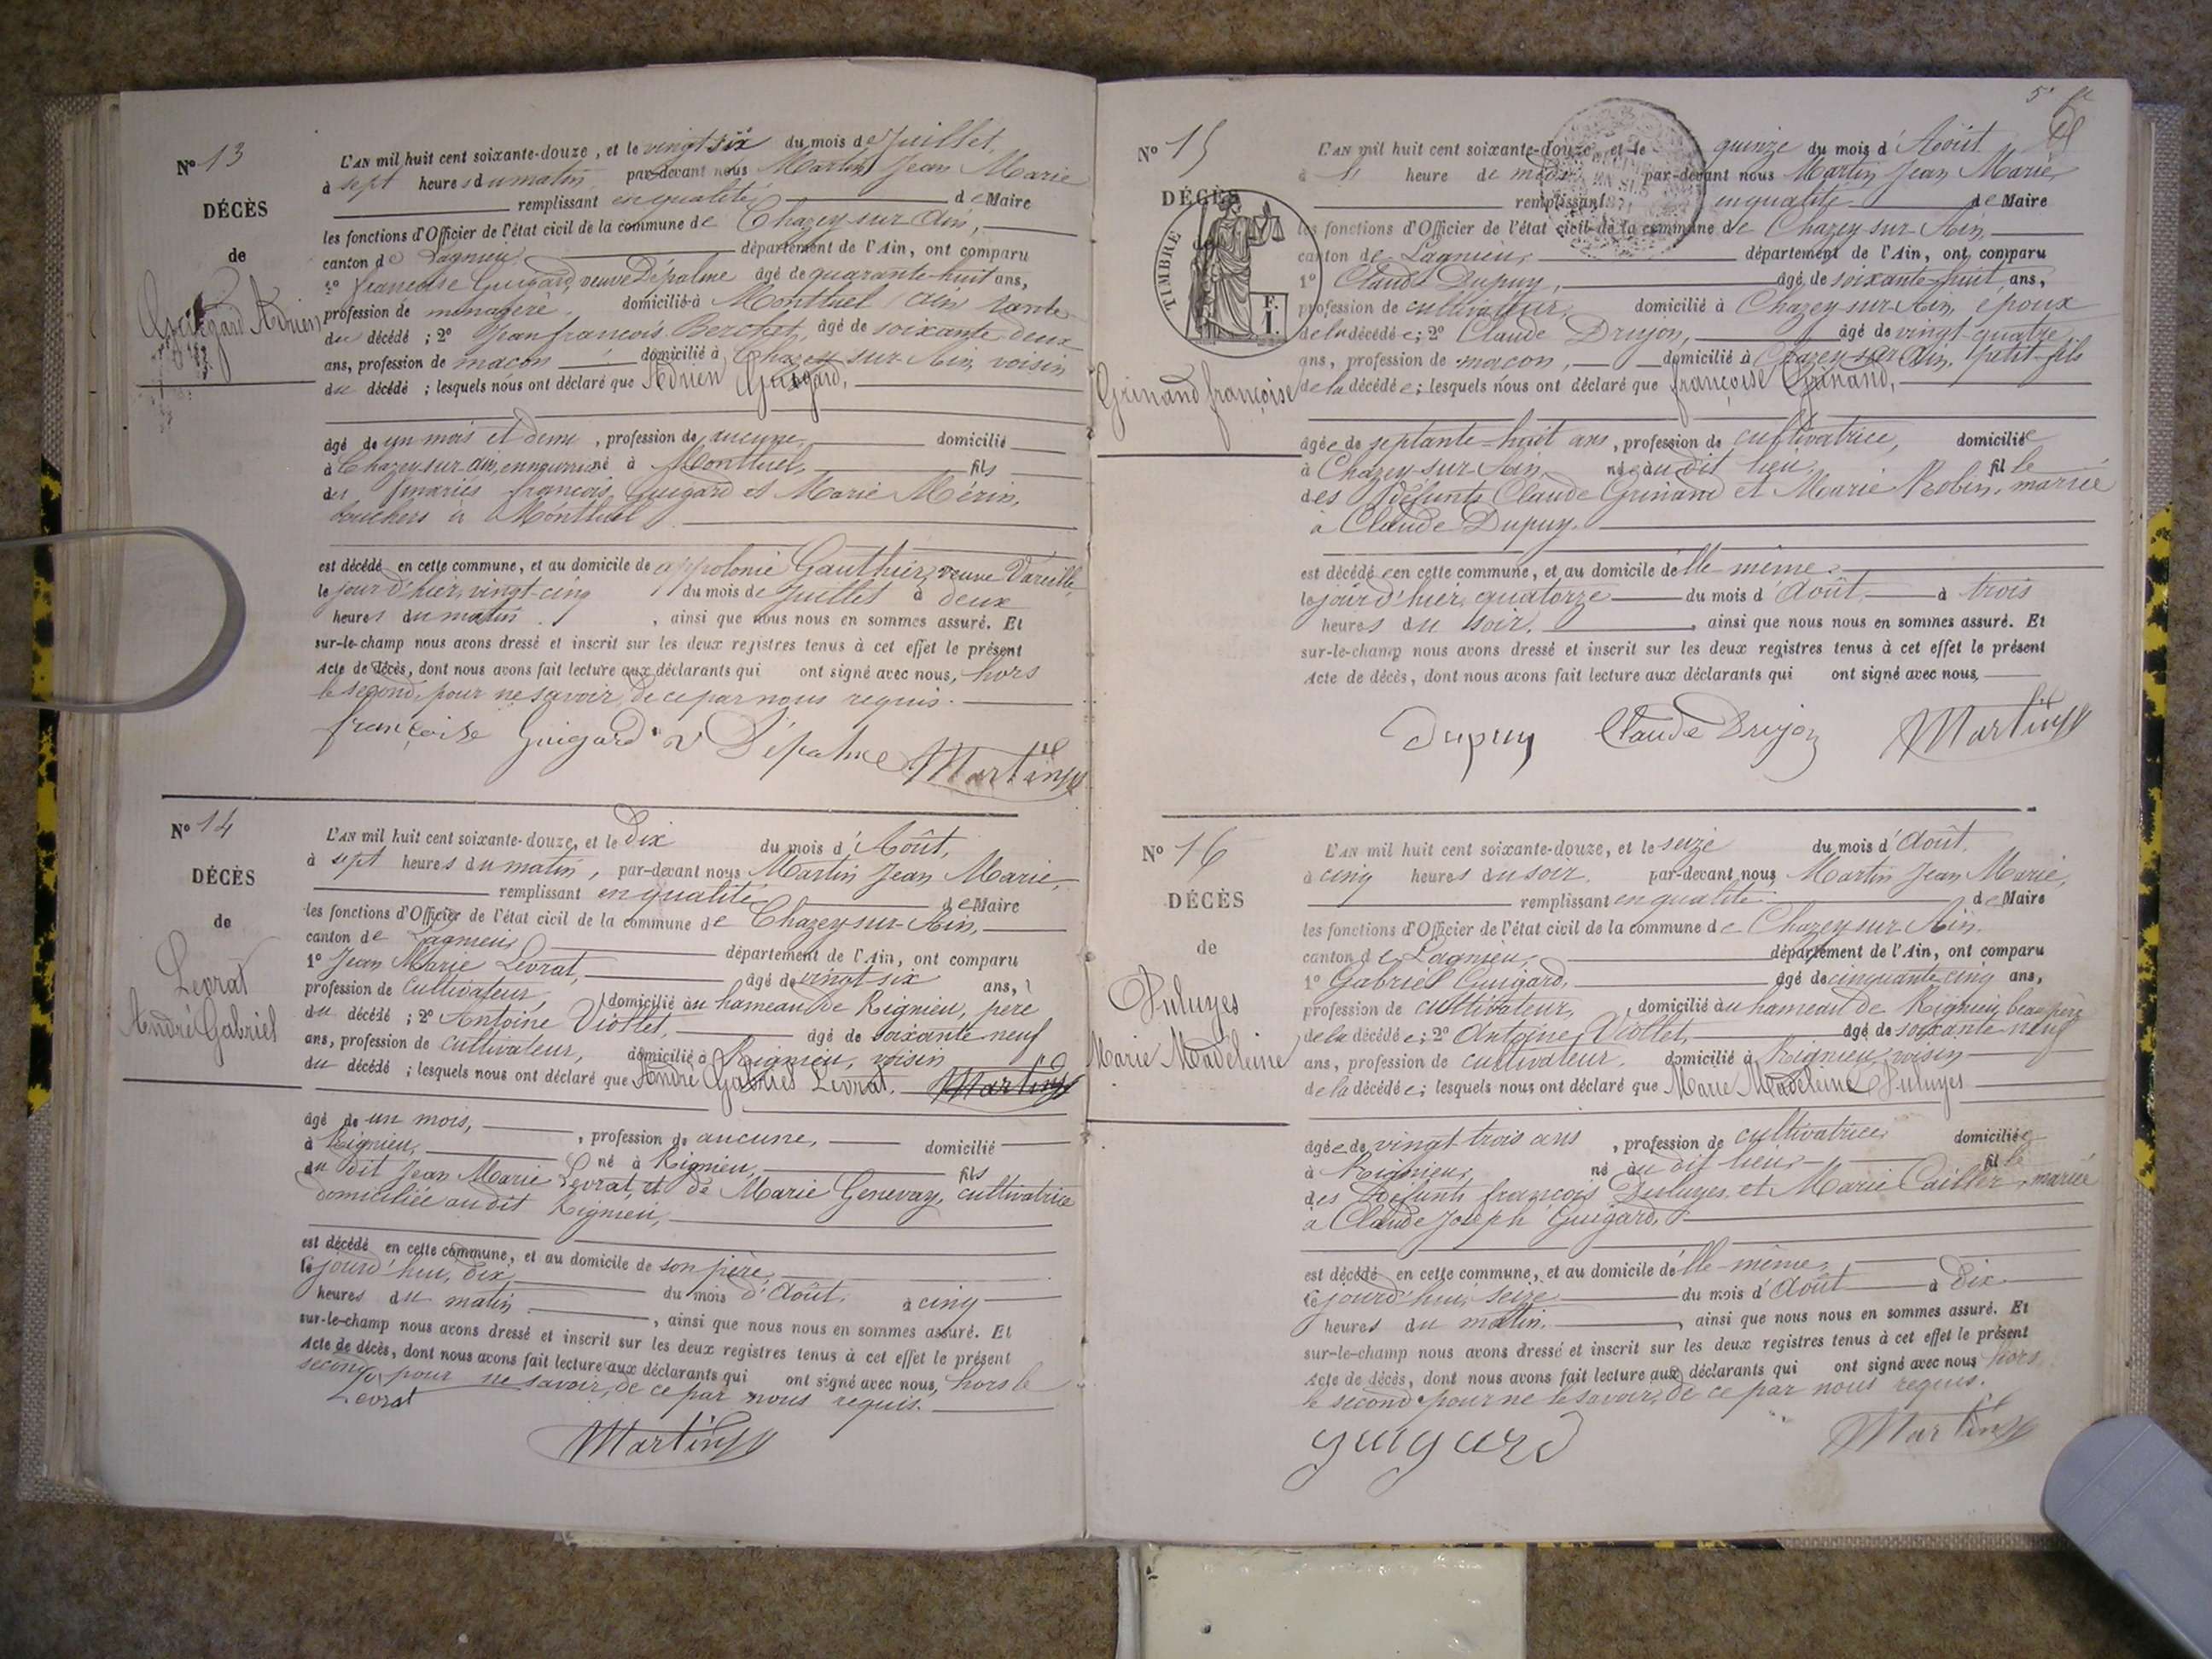 N° 13
DÉCÈS
de
Guigard Adrien
L'AN mil huit cent soixante-douze, et le vingt six du mois de Juillet,
à sept heures du matin, par-devant nous Martin Jean Marie
remplissant en qualité de Maire
les fonctions d'Officier de l'état civil de la commune de Chazey-sur-Ain,
canton de Lagnieu département de l'Ain, ont comparu
1° francoise Guigard, veuve Dépalme âgé de quarante-huit ans,
profession de ménagère. domicilié à Montluel (Ain) tante
du décédé ; 2° Jean francois Berchet, âgé de soixante deux
ans, profession de maçon domicilié à Chazey-sur-Ain, voisin
du décédé ; lesquels nous ont déclaré que Adrien Guigard,
âgé de un mois et demi, profession de aucune, domicilié
à Chazey-sur-Ain, en nourrice né à Montluel, fils
des mariés francois Guigard et Marie Mérin,
bouchers à Montluel
est décédé en cette commune, et au domicile de appolonie Gauthier, veuve Vareille,
le jour d'hier, vingt-cinq du mois de Juillet à deux
heures du matin, ainsi que nous nous en sommes assuré. Et
sur-le-champ nous avons dressé et inscrit sur les deux registres tenus à cet effet le présent
Acte de décès, dont nous avons fait lecture aux déclarants qui ont signé avec nous, hors
le second, pour ne savoir, de ce par nous requis.
françoise Guigard v Dépalme Martin
N° 14
DÉCÈS
de
Levrat
André Gabriel
L'AN mil huit cent soixante-douze, et le Dix du mois d'Août,
à sept heures du matin, par-devant nous Martin Jean Marie,
remplissant en qualité de Maire
les fonctions d'Officier de l'état civil de la commune de Chazey-sur-Ain,
canton de Lagnieu, département de l'Ain, ont comparu
1° Jean Marie Levrat, âgé de vingt six ans,
profession de Cultivateur, domicilié au hameau de Rignieu, père
du décédé ; 2° Antoine Viollet, âgé de soixante neuf
ans, profession de cultivateur, domicilié à Rignieu, voisin
du décédé ; lesquels nous ont déclaré que André Gabriel Levrat. Martin
âgé de un mois, profession de aucune, domicilié
à Rignieu, né à Rignieu, fils
du dit Jean Marie Levrat, et de Marie Genevay, cultivatrice
domiciliée au dit Rignieu,
est décédé en cette commune, et au domicile de son père,
le jourd'hui, dix du mois d'Août, à cinq
heures du matin, ainsi que nous nous en sommes assuré. Et
sur-le-champ nous avons dressé et inscrit sur les deux registres tenus à cet effet le présent
Acte de décès, dont nous avons fait lecture aux déclarants qui ont signé avec nous, hors le
second, pour ne savoir, de ce par nous requis.
Levrat
Martin
5e
N° 15
DÉCÈS
de
TIMBRE
F. 1.
Grinand françoise
L'AN mil huit cent soixante-douze, et le quinze du mois d'Août
à heure de midi par-devant nous Martin Jean Marie,
remplissant en qualité de Maire
les fonctions d'Officier de l'état civil de la commune de Chazey sur Ain,
canton de Lagnieu, département de l'Ain, ont comparu
1° Claude Dupuy, âgé de soixante-huit ans,
profession de cultivateur, domicilié à Chazey-sur-Ain, époux
de la décédée ; 2° Claude Drujon, âgé de vingt-quatre
ans, profession de maçon, domicilié à Chazey-sur-Ain, petit-fils
de la décédée ; lesquels nous ont déclaré que françoise Grinand,
âgée de septante-huit ans, profession de cultivatrice, domiciliée
à Chazey-sur-Ain, née au dit lieu, fille
des défunts Claude Grinand et Marie Robin, mariée
à Claude Dupuy.
est décédée en cette commune, et au domicile d'elle-même,
le jour d'hier, quatorze du mois d'Août à trois
heures du soir, ainsi que nous nous en sommes assuré. Et
sur-le-champ nous avons dressé et inscrit sur les deux registres tenus à cet effet le présent
Acte de décès, dont nous avons fait lecture aux déclarants qui ont signé avec nous,
Dupuy Claude Drujon Martin
N° 16
DÉCÈS
de
Puluyes
Marie Madeleine
L'AN mil huit cent soixante-douze, et le seize du mois d'Août,
à cinq heures du soir, par-devant nous Martin Jean Marie,
remplissant en qualité de Maire
les fonctions d'Officier de l'état civil de la commune de Chazey sur Ain,
canton de Lagnieu, département de l'Ain, ont comparu
1° Gabriel Guigard, âgé de cinquante-cinq ans,
profession de cultivateur, domicilié au hameau de Rignieu, beau père
de la décédée ; 2° Antoine Viollet, âgé de soixante neuf
ans, profession de cultivateur, domicilié à Rignieu, voisin
de la décédée ; lesquels nous ont déclaré que Marie Madeleine Puluyes
âgée de vingt trois ans, profession de cultivatrice, domiciliée
à Rignieu, né au dit lieu, fille
des défunts francois Puluyes et Marie Cailler, mariée
à Claude Joseph Guigard,
est décédé en cette commune, et au domicile d'elle-même,
le jourd'hui, seize du mois d'Août à Dix
heures du matin, ainsi que nous nous en sommes assuré. Et
sur-le-champ nous avons dressé et inscrit sur les deux registres tenus à cet effet le présent
Acte de décès, dont nous avons fait lecture aux déclarants qui ont signé avec nous hors
le second pour ne le savoir, de ce par nous requis.
guigard Martin